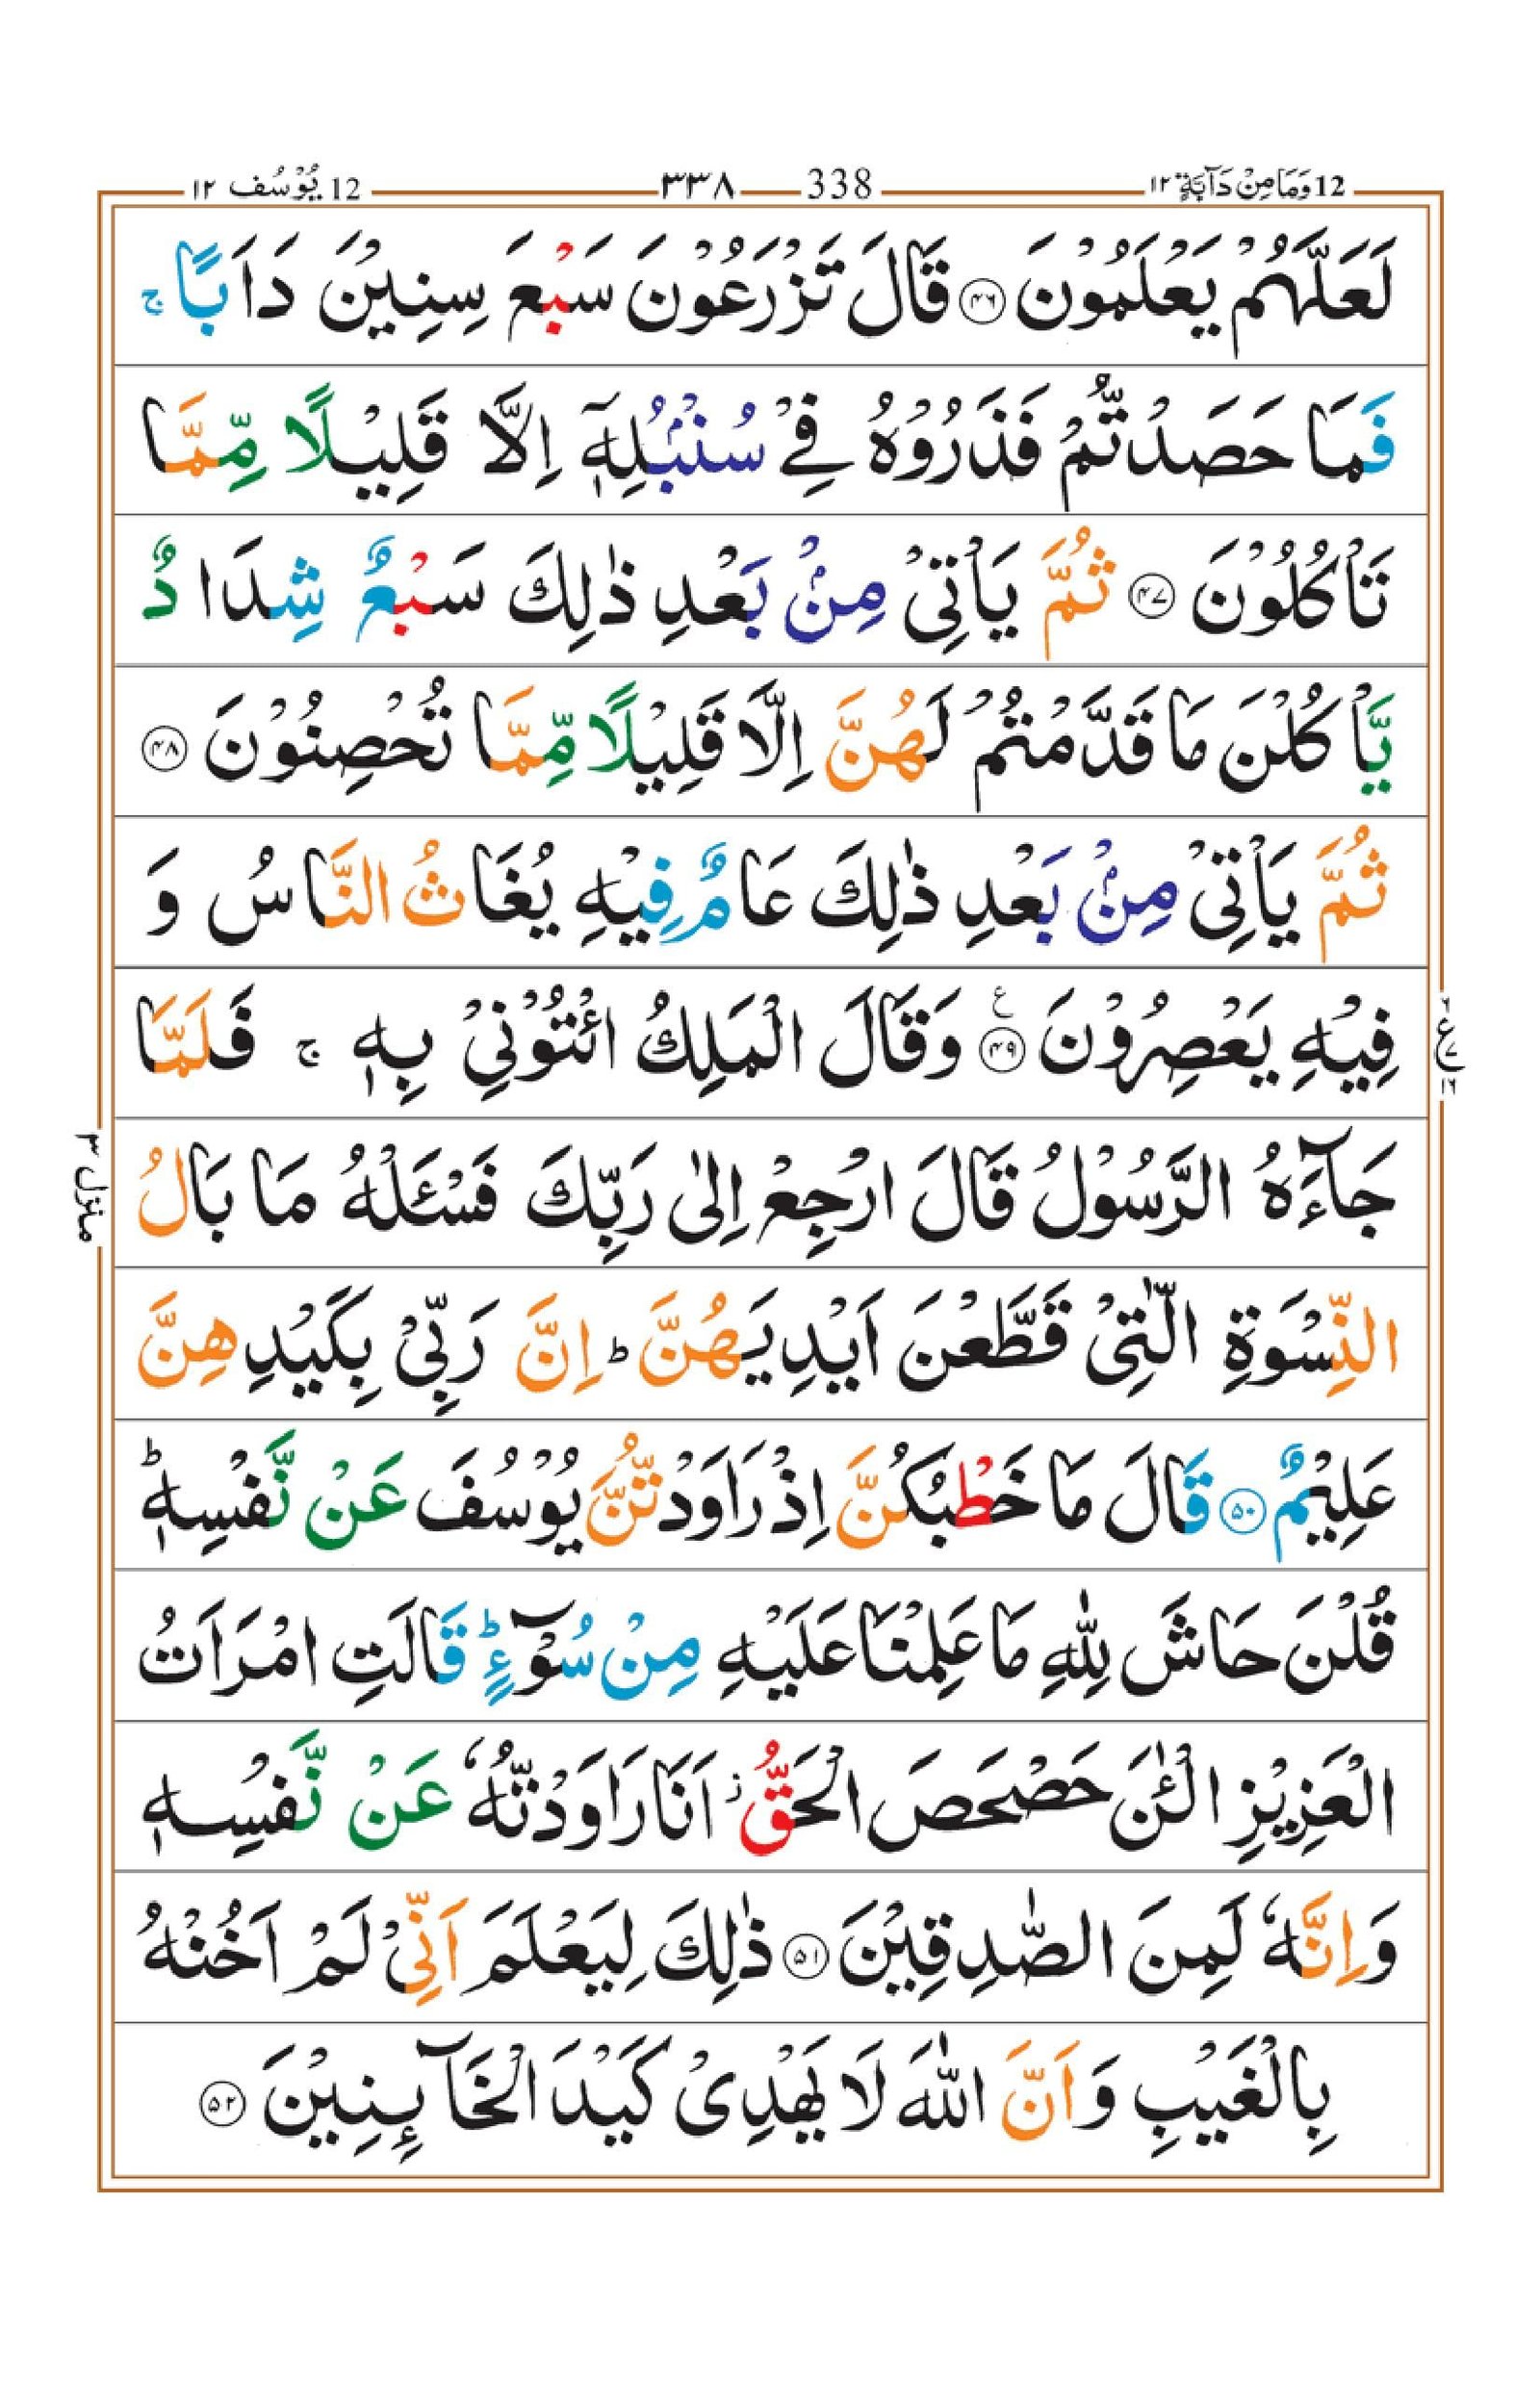 12 وَمَا مِنْ دَآبَّةٍ ١٢ 338 ٣٣٨ 12 يُوْسُف ١٢
لَعَلَّهُمْ يَعْلَمُوْنَ ﴿٤٦﴾ قَالَ تَزْرَعُوْنَ سَبْعَ سِنِيْنَ دَاَبًا ۚ
فَمَا حَصَدْتُّمْ فَذَرُوْهُ فِيْ سُنْۢبُلِهٖٓ اِلَّا قَلِيْلًا مِّمَّا
تَاْكُلُوْنَ ﴿٤٧﴾ ثُمَّ يَاْتِيْ مِنْۢ بَعْدِ ذٰلِكَ سَبْعٌ شِدَادٌ
يَّاْكُلْنَ مَا قَدَّمْتُمْ لَهُنَّ اِلَّا قَلِيْلًا مِّمَّا تُحْصِنُوْنَ ﴿٤٨﴾
ثُمَّ يَاْتِيْ مِنْۢ بَعْدِ ذٰلِكَ عَامٌ فِيْهِ يُغَاثُ النَّاسُ وَ
فِيْهِ يَعْصِرُوْنَ ﴿٤٩﴾ ع وَقَالَ الْمَلِكُ ائْتُوْنِيْ بِهٖ ۚ فَلَمَّا
٢ ع ٧ ١٦
جَآءَهُ الرَّسُوْلُ قَالَ ارْجِعْ اِلٰى رَبِّكَ فَسْـَٔلْهُ مَا بَالُ
منزل ٣
النِّسْوَةِ الّٰتِيْ قَطَّعْنَ اَيْدِيَهُنَّ ؕ اِنَّ رَبِّيْ بِكَيْدِهِنَّ
عَلِيْمٌ ﴿٥٠﴾ قَالَ مَا خَطْبُكُنَّ اِذْ رَاوَدْتُّنَّ يُوْسُفَ عَنْ نَّفْسِهٖ ؕ
قُلْنَ حَاشَ لِلّٰهِ مَا عَلِمْنَا عَلَيْهِ مِنْ سُوْٓءٍ ؕ قَالَتِ امْرَاَتُ
الْعَزِيْزِ الْـٰٔنَ حَصْحَصَ الْحَقُّ ؗ اَنَا رَاوَدْتُّهٗ عَنْ نَّفْسِهٖ
وَاِنَّهٗ لَمِنَ الصّٰدِقِيْنَ ﴿٥١﴾ ذٰلِكَ لِيَعْلَمَ اَنِّيْ لَمْ اَخُنْهُ
بِالْغَيْبِ وَاَنَّ اللّٰهَ لَا يَهْدِيْ كَيْدَ الْخَآىِٕنِيْنَ ﴿٥٢﴾